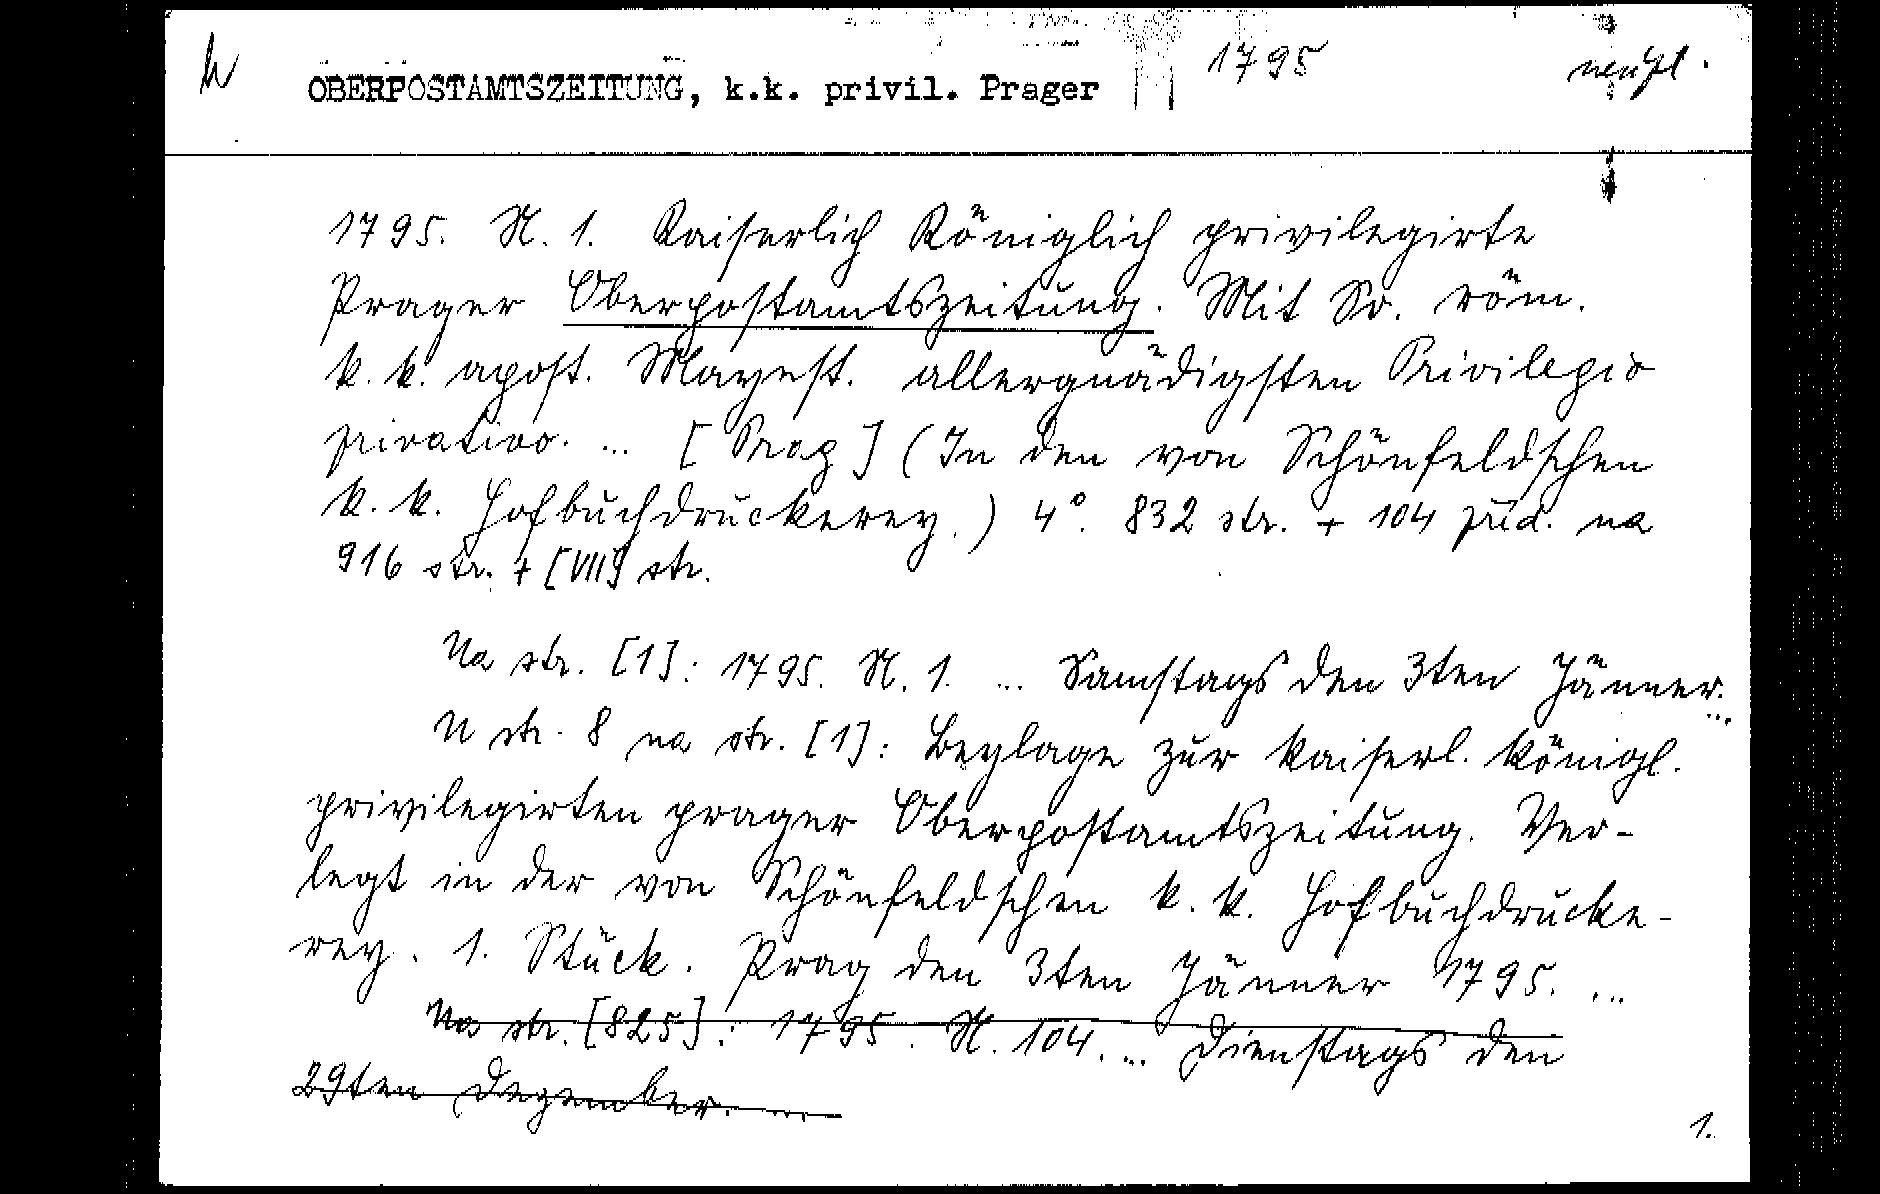 OBERPOSTAMTSZEITUNG, k.k. privil. Prager 1795
1795. N. 1. Kaiserlich Königlich privilegirte
Prager Oberpostamtszeitung. Mit Sr. röm.
k. k. apost. Mayest. allergnädigsten Privilegio
privativo. ... [Prag] (In den von Schönfeldschen
k. k. Hofbuchdruckerey.) 4°. 832 str. + 104 příd. na
916 str. + [VII] str.
Na str. [1]: 1795. N. 1. ... Samstags den 3ten Jänner. ...
U str. 8 na str. [1]: Beylage zur kaiserl. königl.
privilegirten prager Oberpostamtszeitung. Ver-
legt in der von Schönfeldschen k. k. Hofbuchdrucke-
rey. 1. Stück. Prag den 3ten Jänner 1795. ...
Na str. [825]: 1795. N. 104. ... Dienstags den
29ten Dezember. ...
1.